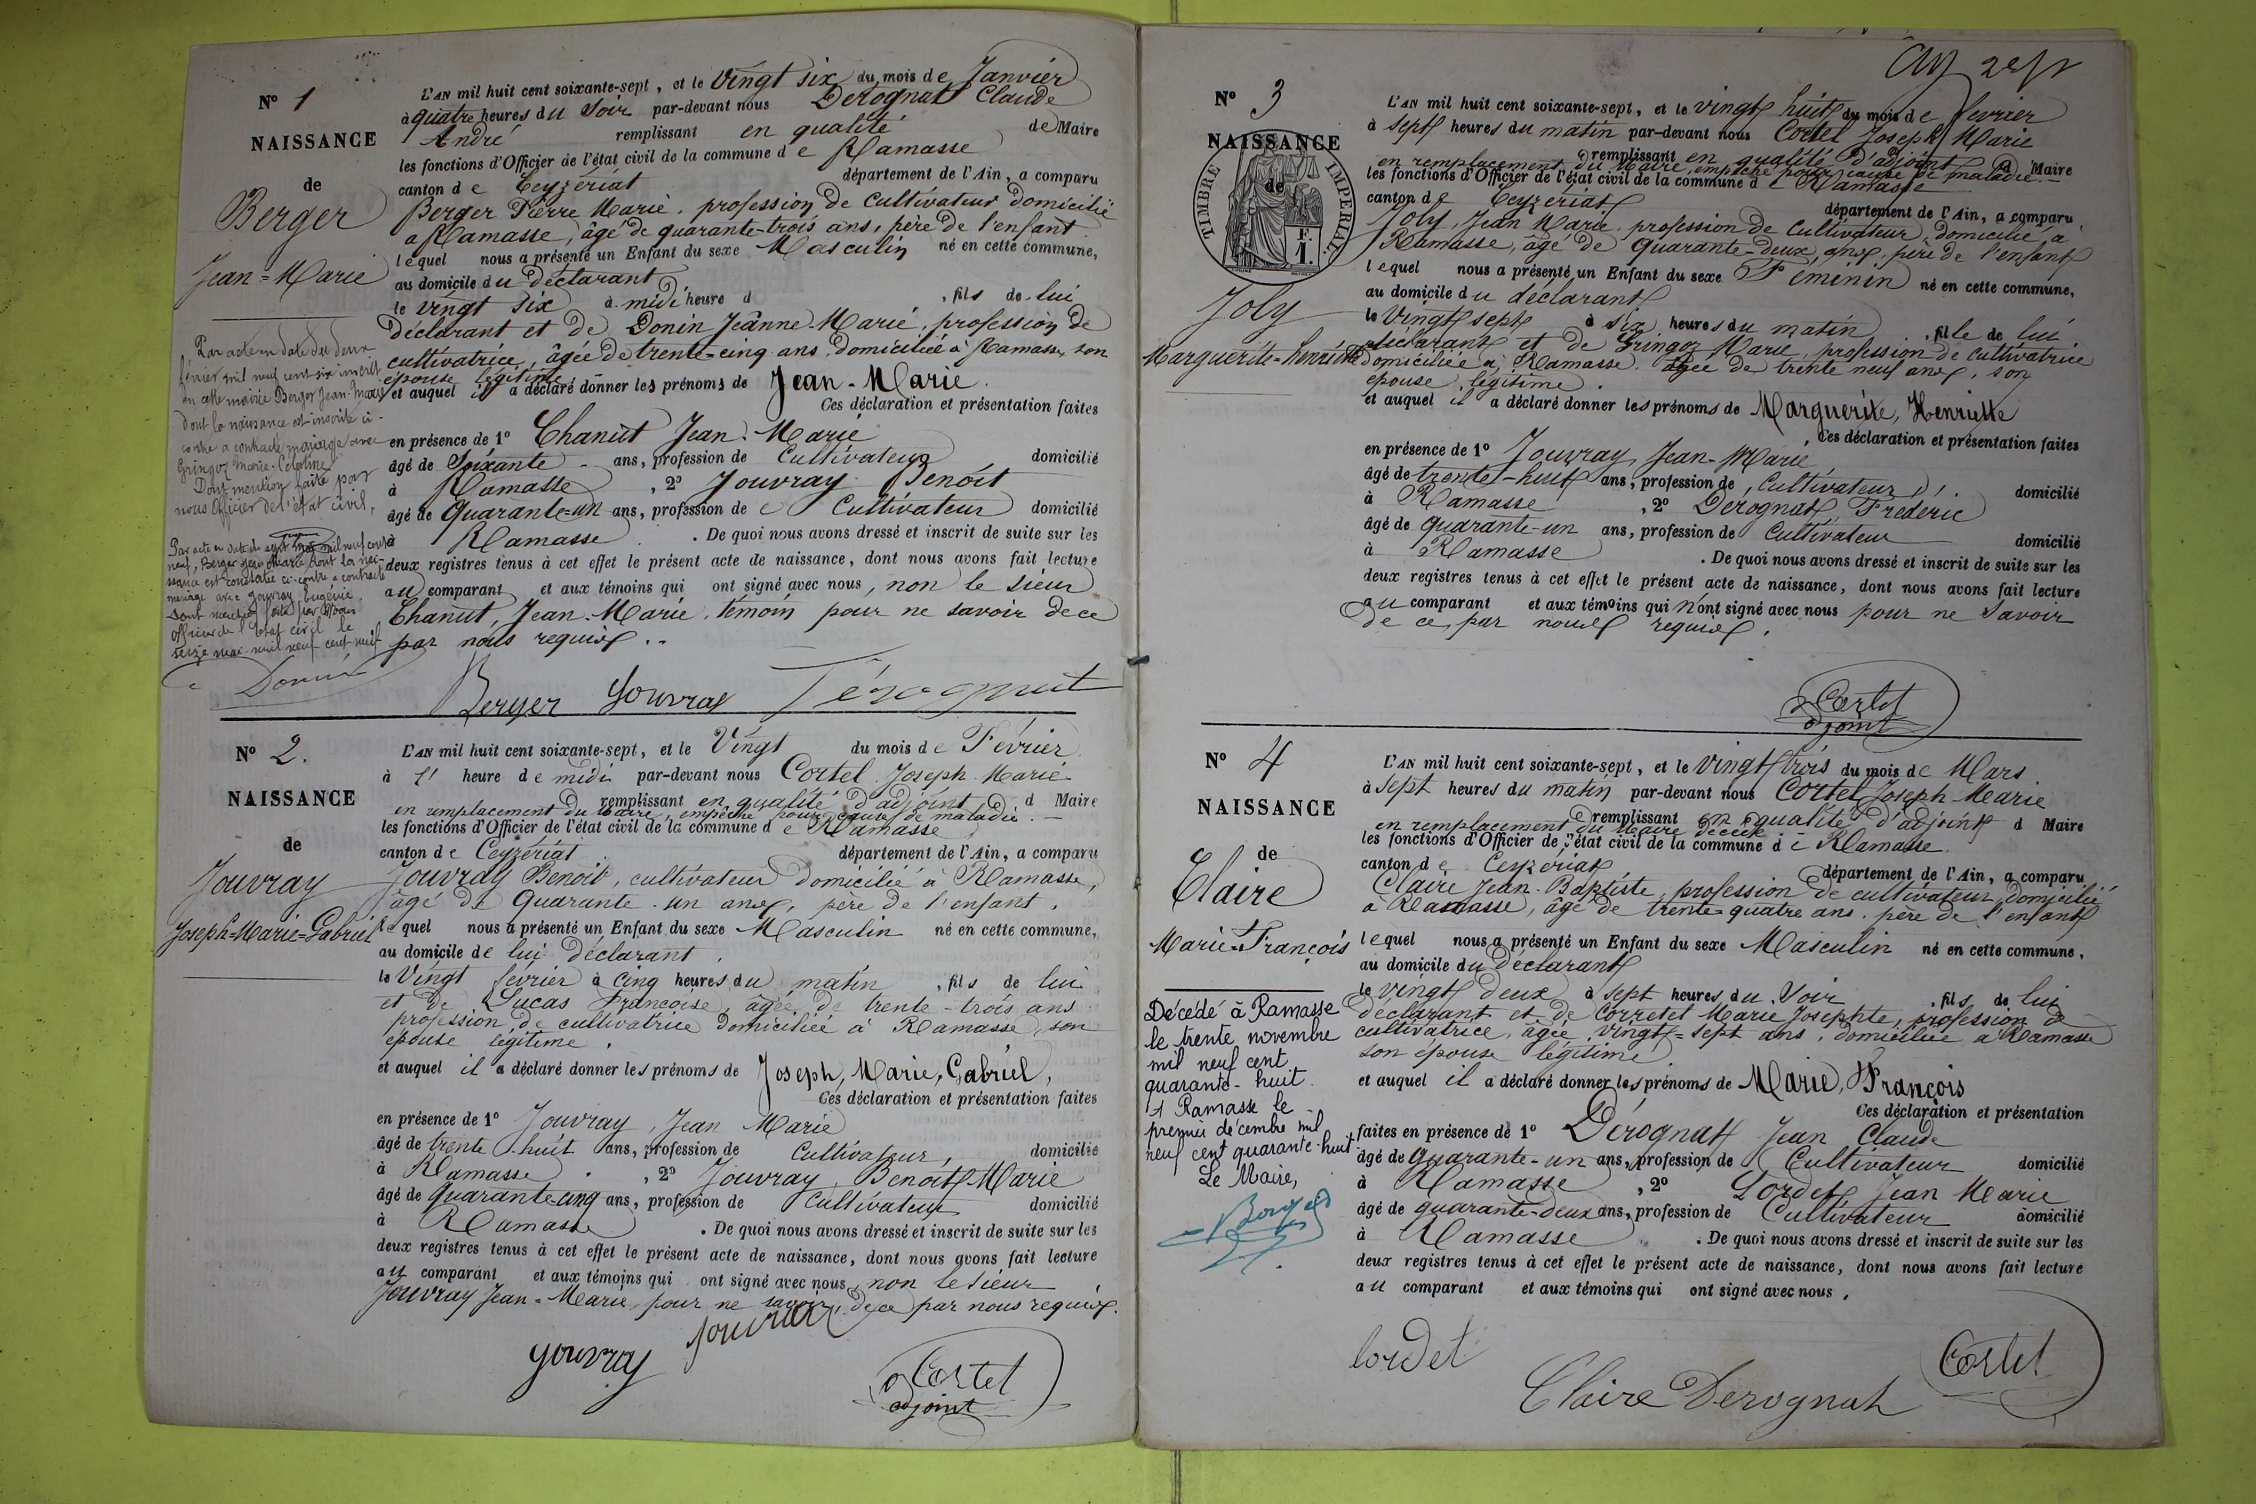 N° 1
NAISSANCE
de
Berger
Jean=Marie
Par acte en date du deux
février mil neuf cent six inscrit
en cette mairie Berger Jean-Marie
dont la naissance est inscrite ci-
contre a contracté mariage avec
Gringoz Marie-Celestine
Dont mention faite par
nous Officier de l'état civil,
Par acte en date du sept mai mil neuf cent
neuf, Berger Jean Marie dont la nais-
sance est constatée ci-contre a contracté
mariage avec Jouvray Eugénie.
Dont mention faite par Nous
Officier de l'état civil le
seize mai mil neuf cent neuf
Donin
L'AN mil huit cent soixante-sept, et le vingt six du mois de Janvier
à quatre heures du Soir par-devant nous Derognat Claude
André remplissant en qualité de Maire
les fonctions d'Officier de l'état civil de la commune de Ramasse
canton de Ceyzériat département de l'Ain, a comparu
Berger Pierre Marie, profession de cultivateur domicilié
a Ramasse, âgé de quarante-trois ans, père de l'enfant
lequel nous a présenté un Enfant du sexe Masculin né en cette commune,
au domicile du déclarant
le vingt six à midi heure d , fils de lui
déclarant et de Donin Jeanne-Marie, profession de
cultivatrice, âgée de trente-cinq ans, domiciliée à Ramasse, son
épouse légitime
et auquel il a déclaré donner les prénoms de Jean-Marie.
Ces déclaration et présentation faites
en présence de 1° Chanut Jean-Marie
âgé de Soixante ans, profession de Cultivateur domicilié
à Ramasse , 2° Jouvray Benoit
âgé de Quarante-un ans, profession de Cultivateur domicilié
à Ramasse . De quoi nous avons dressé et inscrit de suite sur les
deux registres tenus à cet effet le présent acte de naissance, dont nous avons fait lecture
au comparant et aux témoins qui ont signé avec nous, non le sieur
Chanut, Jean-Marie, témoin pour ne savoir de ce
par nous requis..
Berger Jouvray Dérognat
N° 2.
NAISSANCE
de
Jouvray
Joseph=Marie=Gabriel
L'AN mil huit cent soixante-sept, et le Vingt du mois de Février
à l' heure de midi par-devant nous Cortel Joseph Marie
remplissant en qualité d'adjoint d Maire
en remplacement du Maire, empêché pour cause de maladie.
les fonctions d'Officier de l'état civil de la commune de Ramasse
canton de Ceyzériat département de l'Ain, a comparu
Jouvray Benoit, cultivateur domicilié à Ramasse,
âgé de Quarante-un ans, père de l'enfant,
lequel nous a présenté un Enfant du sexe Masculin né en cette commune,
au domicile de lui déclarant,
le Vingt février à cinq heures du matin , fils de lui
et de Lucas Francoise, âgée de trente-trois ans
profession de cultivatrice domiciliée à Ramasse, son
épouse légitime.
et auquel il a déclaré donner les prénoms de Joseph, Marie, Gabriel,
Ces déclaration et présentation faites
en présence de 1° Jouvray, Jean Marie
âgé de trente-huit ans, profession de Cultivateur, domicilié
à Ramasse , 2° Jouvray Benoit-Marie
âgé de quarante cinq ans, profession de Cultivateur domicilié
à Ramasse . De quoi nous avons dressé et inscrit de suite sur les
deux registres tenus à cet effet le présent acte de naissance, dont nous avons fait lecture
au comparant et aux témoins qui ont signé avec nous, non le sieur
Jouvray Jean=Marie, pour ne savoir, de ce par nous requis.
Jouvray Jouvray
Cortel
adjoint
N° 3
NAISSANCE
de
TIMBRE IMPERIAL
F.
1.
Joly
Marguerite=Henriette
L'AN mil huit cent soixante-sept, et le vingt huit du mois de fevrier
à sept heures du matin par-devant nous Cortel Joseph Marie
remplissant en qualité d'adjoint Maire
en remplacement du Maire, empêché pour cause de maladie.
les fonctions d'Officier de l'état civil de la commune de Ramasse
canton de Ceyzeriat département de l'Ain, a comparu
Joly, Jean Marie, profession de Cultivateur, domicilié a
Ramasse, âgé de Quarante-deux ans, père de l'enfant
lequel nous a présenté un Enfant du sexe Féminin né en cette commune,
au domicile du déclarant
le Vingt sept à six heures du matin , fille de lui
déclarant et de Gringoz Marie, profession de cultivatrice
domiciliée a Ramasse âgée de trente neuf ans, son
épouse légitime.
et auquel il a déclaré donner les prénoms de Marguerite, Henriette
Ces déclaration et présentation faites
en présence de 1° Jouvray, Jean-Marie
âgé de trente-huit ans, profession de Cultivateur domicilié
à Ramasse , 2° Dérognat Fréderic
âgé de quarante-un ans, profession de Cultivateur domicilié
à Ramasse . De quoi nous avons dressé et inscrit de suite sur les
deux registres tenus à cet effet le présent acte de naissance, dont nous avons fait lecture
au comparant et aux témoins qui n'ont signé avec nous pour ne savoir
de ce, par nous requis.
Cortel
adjoint
N° 4
NAISSANCE
de
Claire
Marie=François
Décédé à Ramasse
le trente novembre
mil neuf cent
quarante-huit.
A Ramasse le
premier décembre mil
neuf cent quarante-huit
Le Maire,
L'AN mil huit cent soixante-sept, et le vingt trois du mois de Mars
à sept heures du matin par-devant nous Cortel Joseph Marie
remplissant en qualité d'adjoint d Maire
en remplacement du Maire décédé
les fonctions d'Officier de l'état civil de la commune de Ramasse
canton de Ceyzériat département de l'Ain, a comparu
Claire Jean-Baptiste, profession de cultivateur, domicilié
a Ramasse, âgé de trente-quatre ans, père de l'enfant
lequel nous a présenté un Enfant du sexe Masculin né en cette commune,
au domicile du Déclarant
le vingt deux à sept heures du Soir , fils de lui
déclarant et de Corretet Marie Josephte, profession de
cultivatrice, âgée vingt-sept ans, domiciliée a Ramasse
son épouse légitime
et auquel il a déclaré donner les prénoms de Marie, François
Ces déclaration et présentation
faites en présence de 1° Dérognat Jean Claude
âgé de quarante-un ans, profession de Cultivateur domicilié
à Ramasse , 2° Lordet Jean Marie
âgé de quarante-deux ans, profession de Cultivateur domicilié
à Ramasse . De quoi nous avons dressé et inscrit de suite sur les
deux registres tenus à cet effet le présent acte de naissance, dont nous avons fait lecture
au comparant et aux témoins qui ont signé avec nous,
lordet
Claire Derognat
Cortel